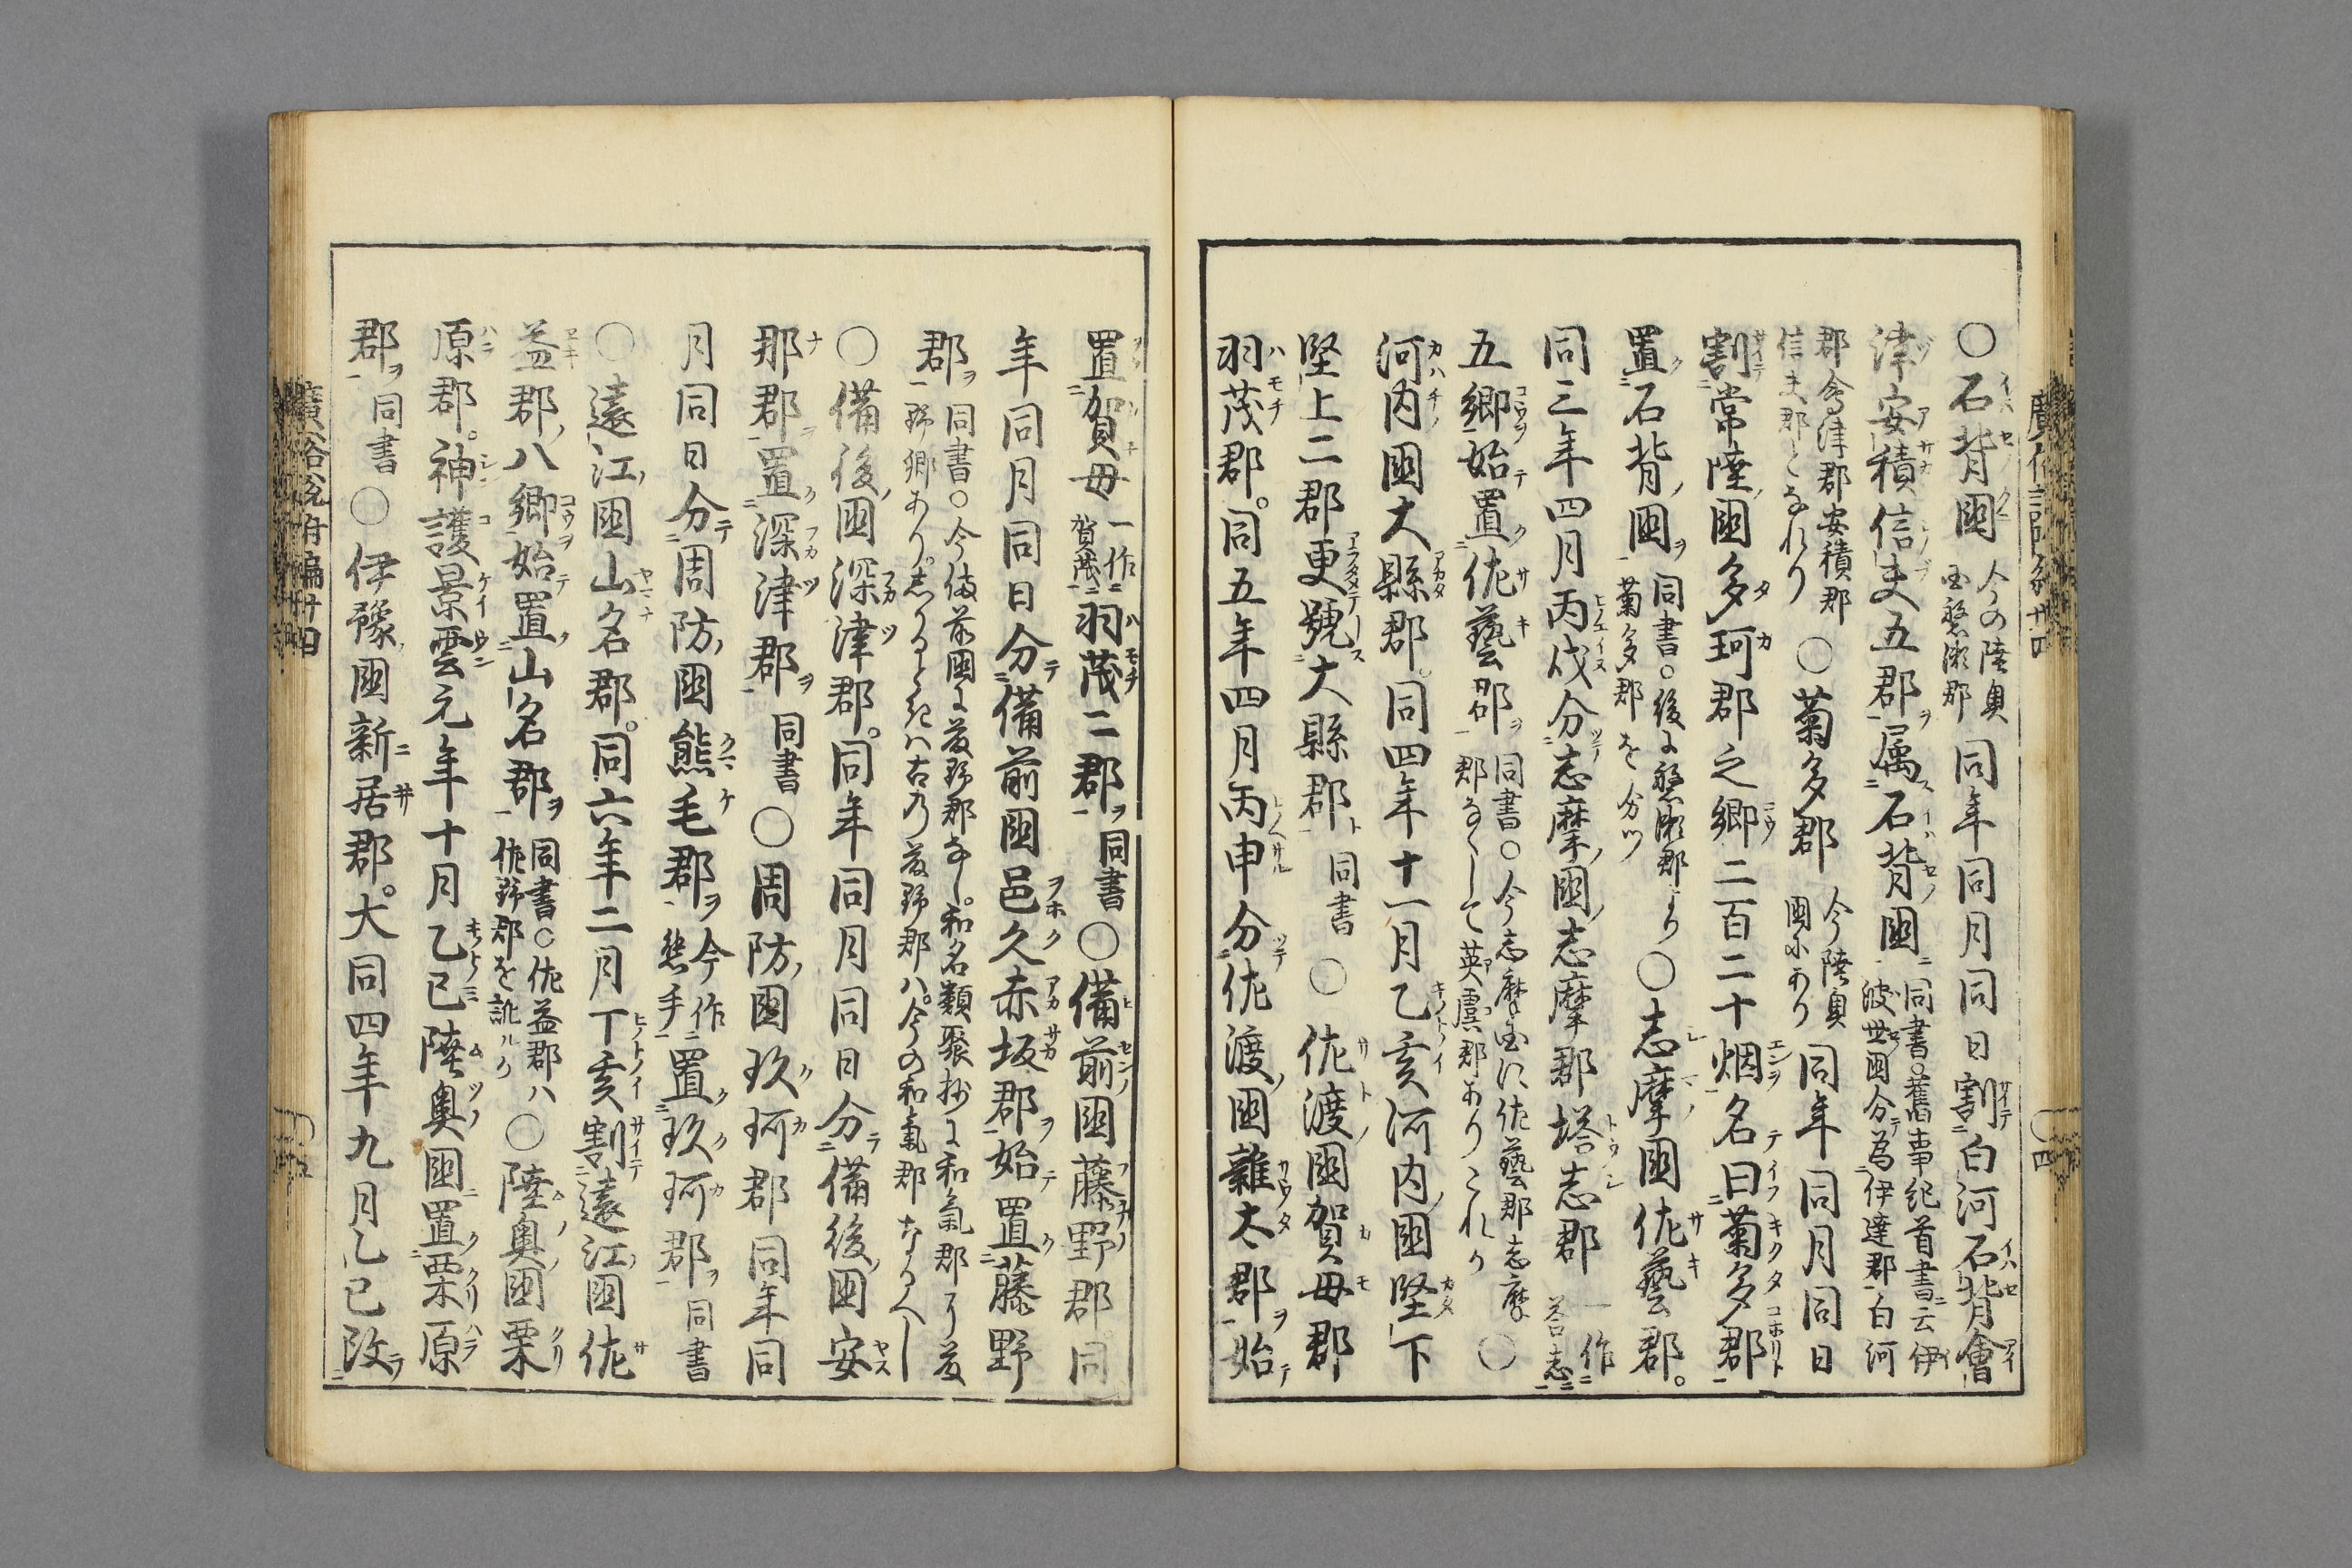 ○石背國 今の陸奥国磐瀬郡 同年同月同日割白河石背會
津安積信夫五郡属石背國 同書○舊事紀首書云伊波世國分為伊達郡白河
郡會津郡安積郡信夫郡となれり ○菊多郡 今陸奥國にあり 同年同月同日
割常陸國多珂郡之郷二百二十烟名曰菊多郡
置石背國 同書○後に磐瀬郡より菊多郡を分ツ ○志摩國佐藝郡。
同三年四月丙戌分志摩國志摩郡塔志郡 一作荅志
五郷始置佐藝郡 同書○今志摩国に佐藝郡志摩郡なくして英虞郡ありこれか ○
河内國大縣郡。同四年十一月乙亥河内國堅下
堅上二郡更號大縣郡 同書 ○佐渡國賀母郡
羽茂郡。同五年四月丙申分佐渡國雜太郡始
置賀母 一作賀茂 羽茂二郡 同書 ○備前國藤野郡同
年同月同日分備前國邑久赤坂郡始置藤野
郡 同書○今備前國に藤野郡なし。和名類聚抄に和氣郡に藤野郷あり。しかるときハ古乃藤野郡ハ。今の和氣郡なるへし
○備後國深津郡。同年同月同日分備後國安
那郡置深津郡 同書 ○周防國玖珂郡同年同
月同日分周防國熊毛郡 今作熊手 置玖珂郡 同書
○遠江國山名郡。同六年二月丁亥割遠江國佐
益郡八郷始置山名郡 同書○佐益郡ハ佐野郡を訛ルか ○陸奥國栗
原郡。神護景雲元年十月乙巳陸奥國置栗原
郡 同書 ○伊豫國新居郡。大同四年九月乙巳改
廣俗説府編廿四